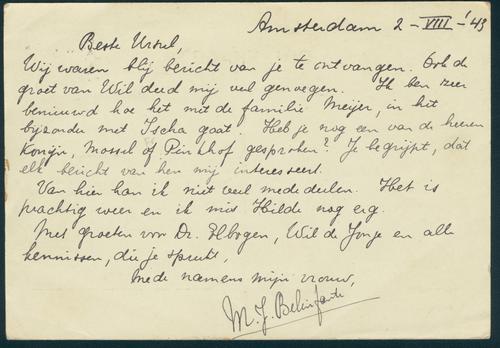 Amsterdam 2-VIII-'43
Beste Ursul,
Wij waren blij bericht van je te ontvangen. Ook de
groet van Wil deed mij veel genoegen. Ik ben zeer
benieuwd hoe het met de familie Meijer, in het
bijzonder met Ischa gaat. Heb je nog een van de heeren
Konijn, Mossel of Pinkhof gesproken? Je begrijpt, dat
elk bericht van hen mij interesseert.
Van hier kan ik niet veel mededeelen. Het is
prachtig weer en ik mis Hilde nog erg.
Met groeten voor Dr. Elbogen, Wil de Jonge en alle
kennissen, die je spreekt,
Mede namens mijn vrouw,
M. J. Belinfante